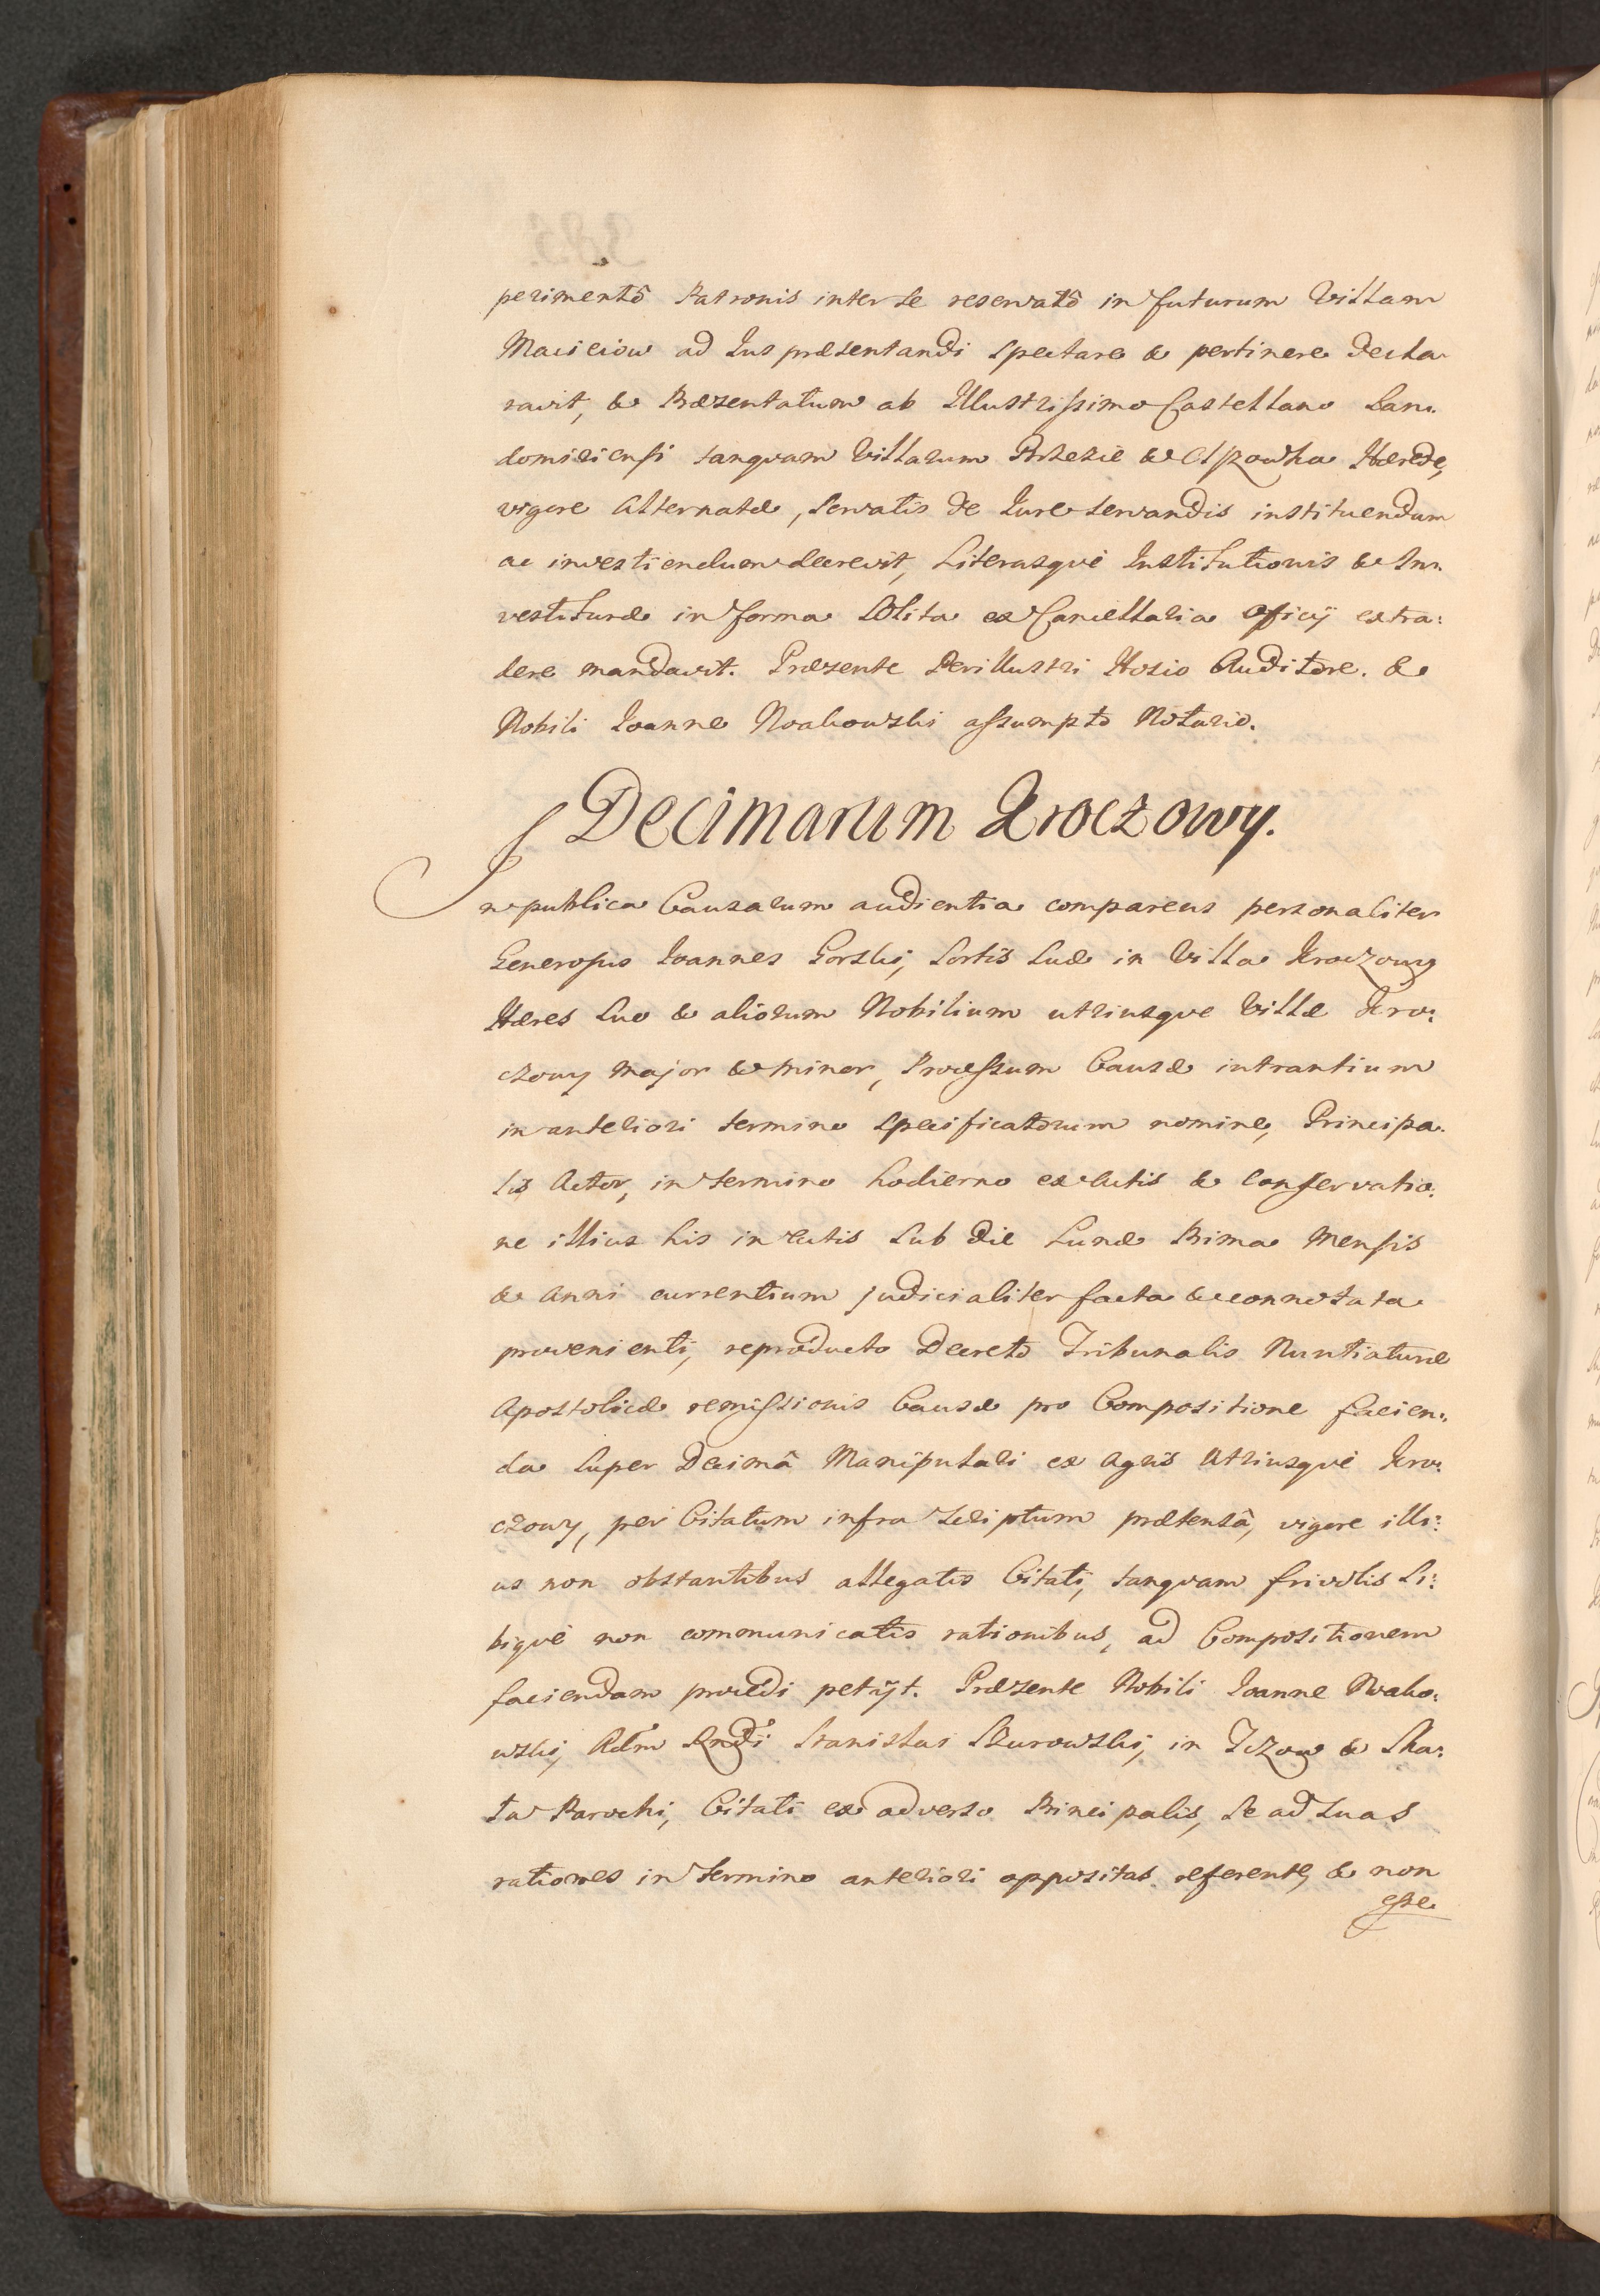 perimentô Patronis inter se reservatô in futurum Villam
Macieiow ad Ius præsentandi spectare & pertinere decla-
ravit, & Præsentatum ab Illustrissimo Castellano San-
domiriensi tanquam Villarum Brzezie & Hærede,
vigore Alternatæ, servatis de Iure servandis instituendum
ac investiendum decrevit, Literasquè Institutionis & In-
vestituræ in forma solita ex Cancellaria Officij extra:
dere mandavit. Præsente Perillustri Hosio Auditore. &
Nobili Ioanne Noakowski assumpto Notario.
Decimarum Kroczowy.
In publica Causarum audientia comparens personaliter
Generosus Ioannes Gorski, sortis suæ in Villa Kroczowy
Hæres suo & aliorum Nobilium utriusque Villæ Kro:
czowy Major & Minor, Processum Causæ intrantium
in anteriori termino specificatorum nomine, Principa-
lis Actor, in termino hodierno ex Actis & conservatio-
ne illius his in Actis sub die Lunæ Prima Mensis
& Anni currentium judicialiter facta & connotata
provenienti, reproducto Decreto Tribunalis Nuntiaturæ
Apostolicæ remissionis Causæ pro Compositione facien-
da super Decimâ Manipulari ex Agris Utriusquè Kro:
czowy, per Citatum infra scriptum prætensâ, vigore illi:
us non obstantibus allegatis Citati, tanquam frivolis si:
biquè non communicatis rationibus, ad Compositionem
faciendam procedi petijt. Præsente Nobili Ioanne Noako:
wski, Adm Rndi Stanislai Skurowski, in Tczow & Ska:
la Parochi, Citati ex adverso Principalis, se ad suas
rationes in termino anteriori oppositas referente, & non
esse